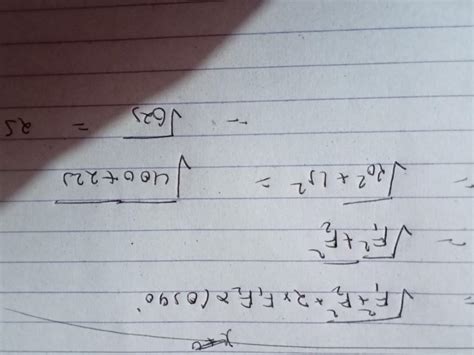 = √F₁² + F₂² + 2 × F₁F₂ × Cos90°
- √F₁² + F₂²
- √20² + 15² = √400 + 225
- √625 = 25